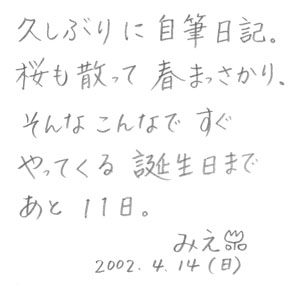 久しぶりに自筆日記。
桜も散って春まっさかり。
そんなこんなですぐ
やってくる誕生日まで
あと11日。
みえ
2002.4.14(日)